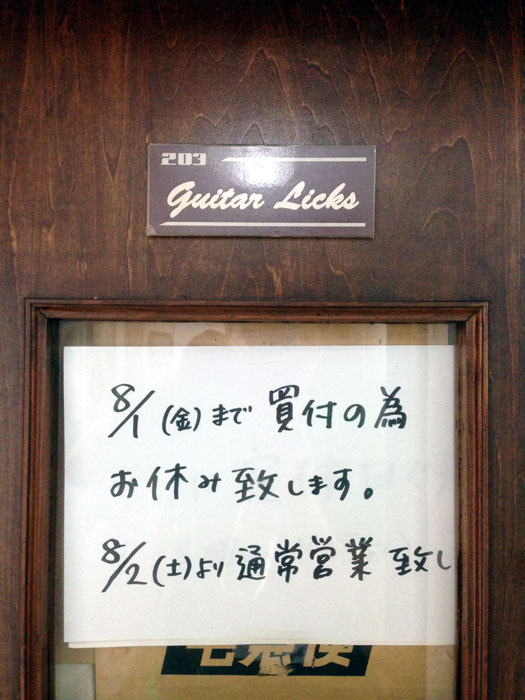 203
Guitar Licks
8/1(金)まで買付の為
お休み致します。
8/2(土)より通常営業致し